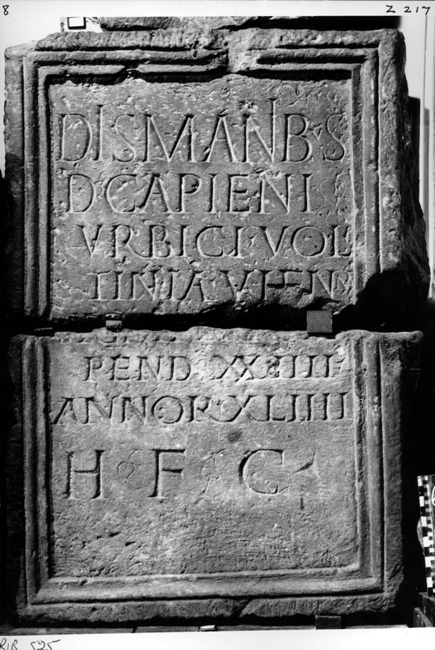 8 Z 217
DIS MANIBVS
D CAPIENI
VRBICI VOL
TINIA VIENN
PEND XXIIII
ANNOR XLIIII
H F C
RIB 525